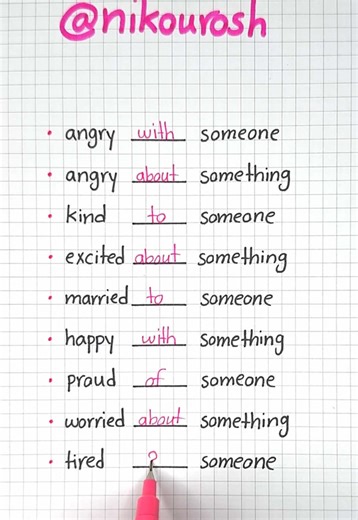 @nikourosh
• angry with someone
• angry about something
• kind to someone
• excited about something
• married to someone
• happy with something
• proud of someone
• worried about something
• tired ? someone